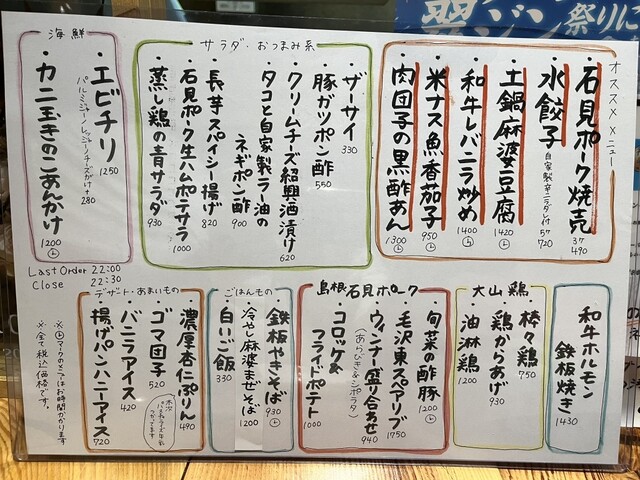 オススメメニュー
・石見ポーク焼売 3ケ 490
・水餃子 自家製辛ニラダレ付 5ケ 720
・土鍋麻婆豆腐 1420 L
・和牛レバニラ炒め 1400 L
・米ナス魚香茄子 950 L
・肉団子の黒酢あん 1300 L
サラダ・おつまみ系
・ザーサイ 330
・豚ガツポン酢 550
・クリームチーズ紹興酒漬け 620
・タコと自家製ラー油の
ネギポン酢 900
・長芋スパイシー揚げ 820
・石見ポーク生ハムポテサラ 1000
・蒸し鶏の青サラダ 930
海鮮
・エビチリ 1250
パルミジャーノレッジャーノチーズがけ+280
・カニ玉きのこあんかけ 1200 L
Last Order 22:00
Close 22:30
和牛ホルモン
鉄板焼き 1430
大山鶏
・棒々鶏 750
・鶏からあげ 930
・油淋鶏 1200
島根石見ポーク
・旬菜の酢豚 1200 L
・毛沢東スペアリブ 1750
・ウィンナー盛り合わせ 940
(あらびき&シポラタ)
・コロッケ&
フライドポテト 1000
ごはんもの
・鉄板やきそば 930 L
・冷やし麻婆まぜそば 1200
・白いご飯 330
デザート・あまいもの
・濃厚杏仁ぷりん 490
木次パスチャライズ牛乳つかってます
・ゴマ団子 520
・バニラアイス 420
・揚げパンハニーアイス 720
※Lマークのとこはお時間かかります
※全て税込価格です。
祭りに